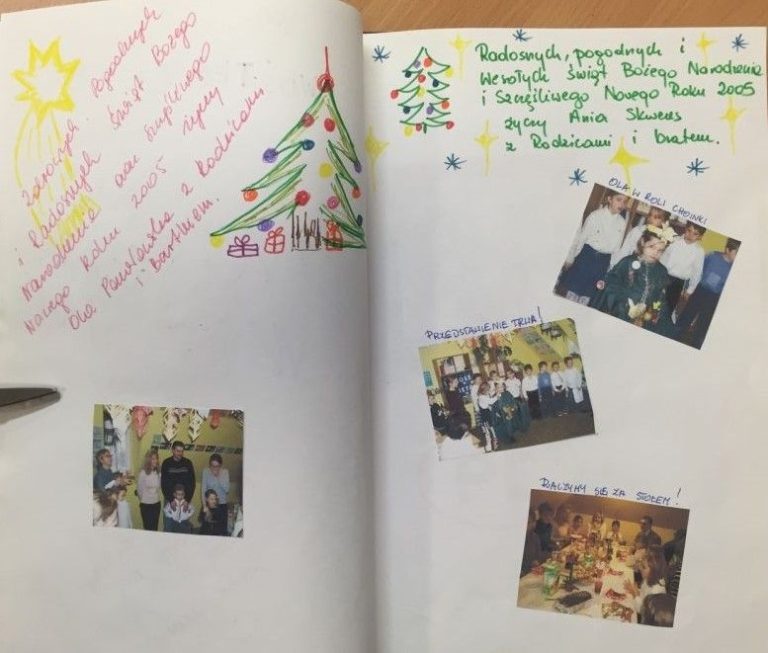 Zdrowych, Pogodnych
i Radosnych Świąt Bożego
Narodzenia oraz szczęśliwego
Nowego Roku 2005 życzy
Ola Pawłowska z Rodzicami
i Bartkiem.
Radosnych, pogodnych i
Wesołych świąt Bożego Narodzenia
i Szczęśliwego Nowego Roku 2005
życzy Ania Skweres
z Rodzicami i bratem.
OLA W ROLI CHOINKI
PRZEDSTAWIENIE TRWA!
RACZYMY SIĘ ZA STOŁEM!